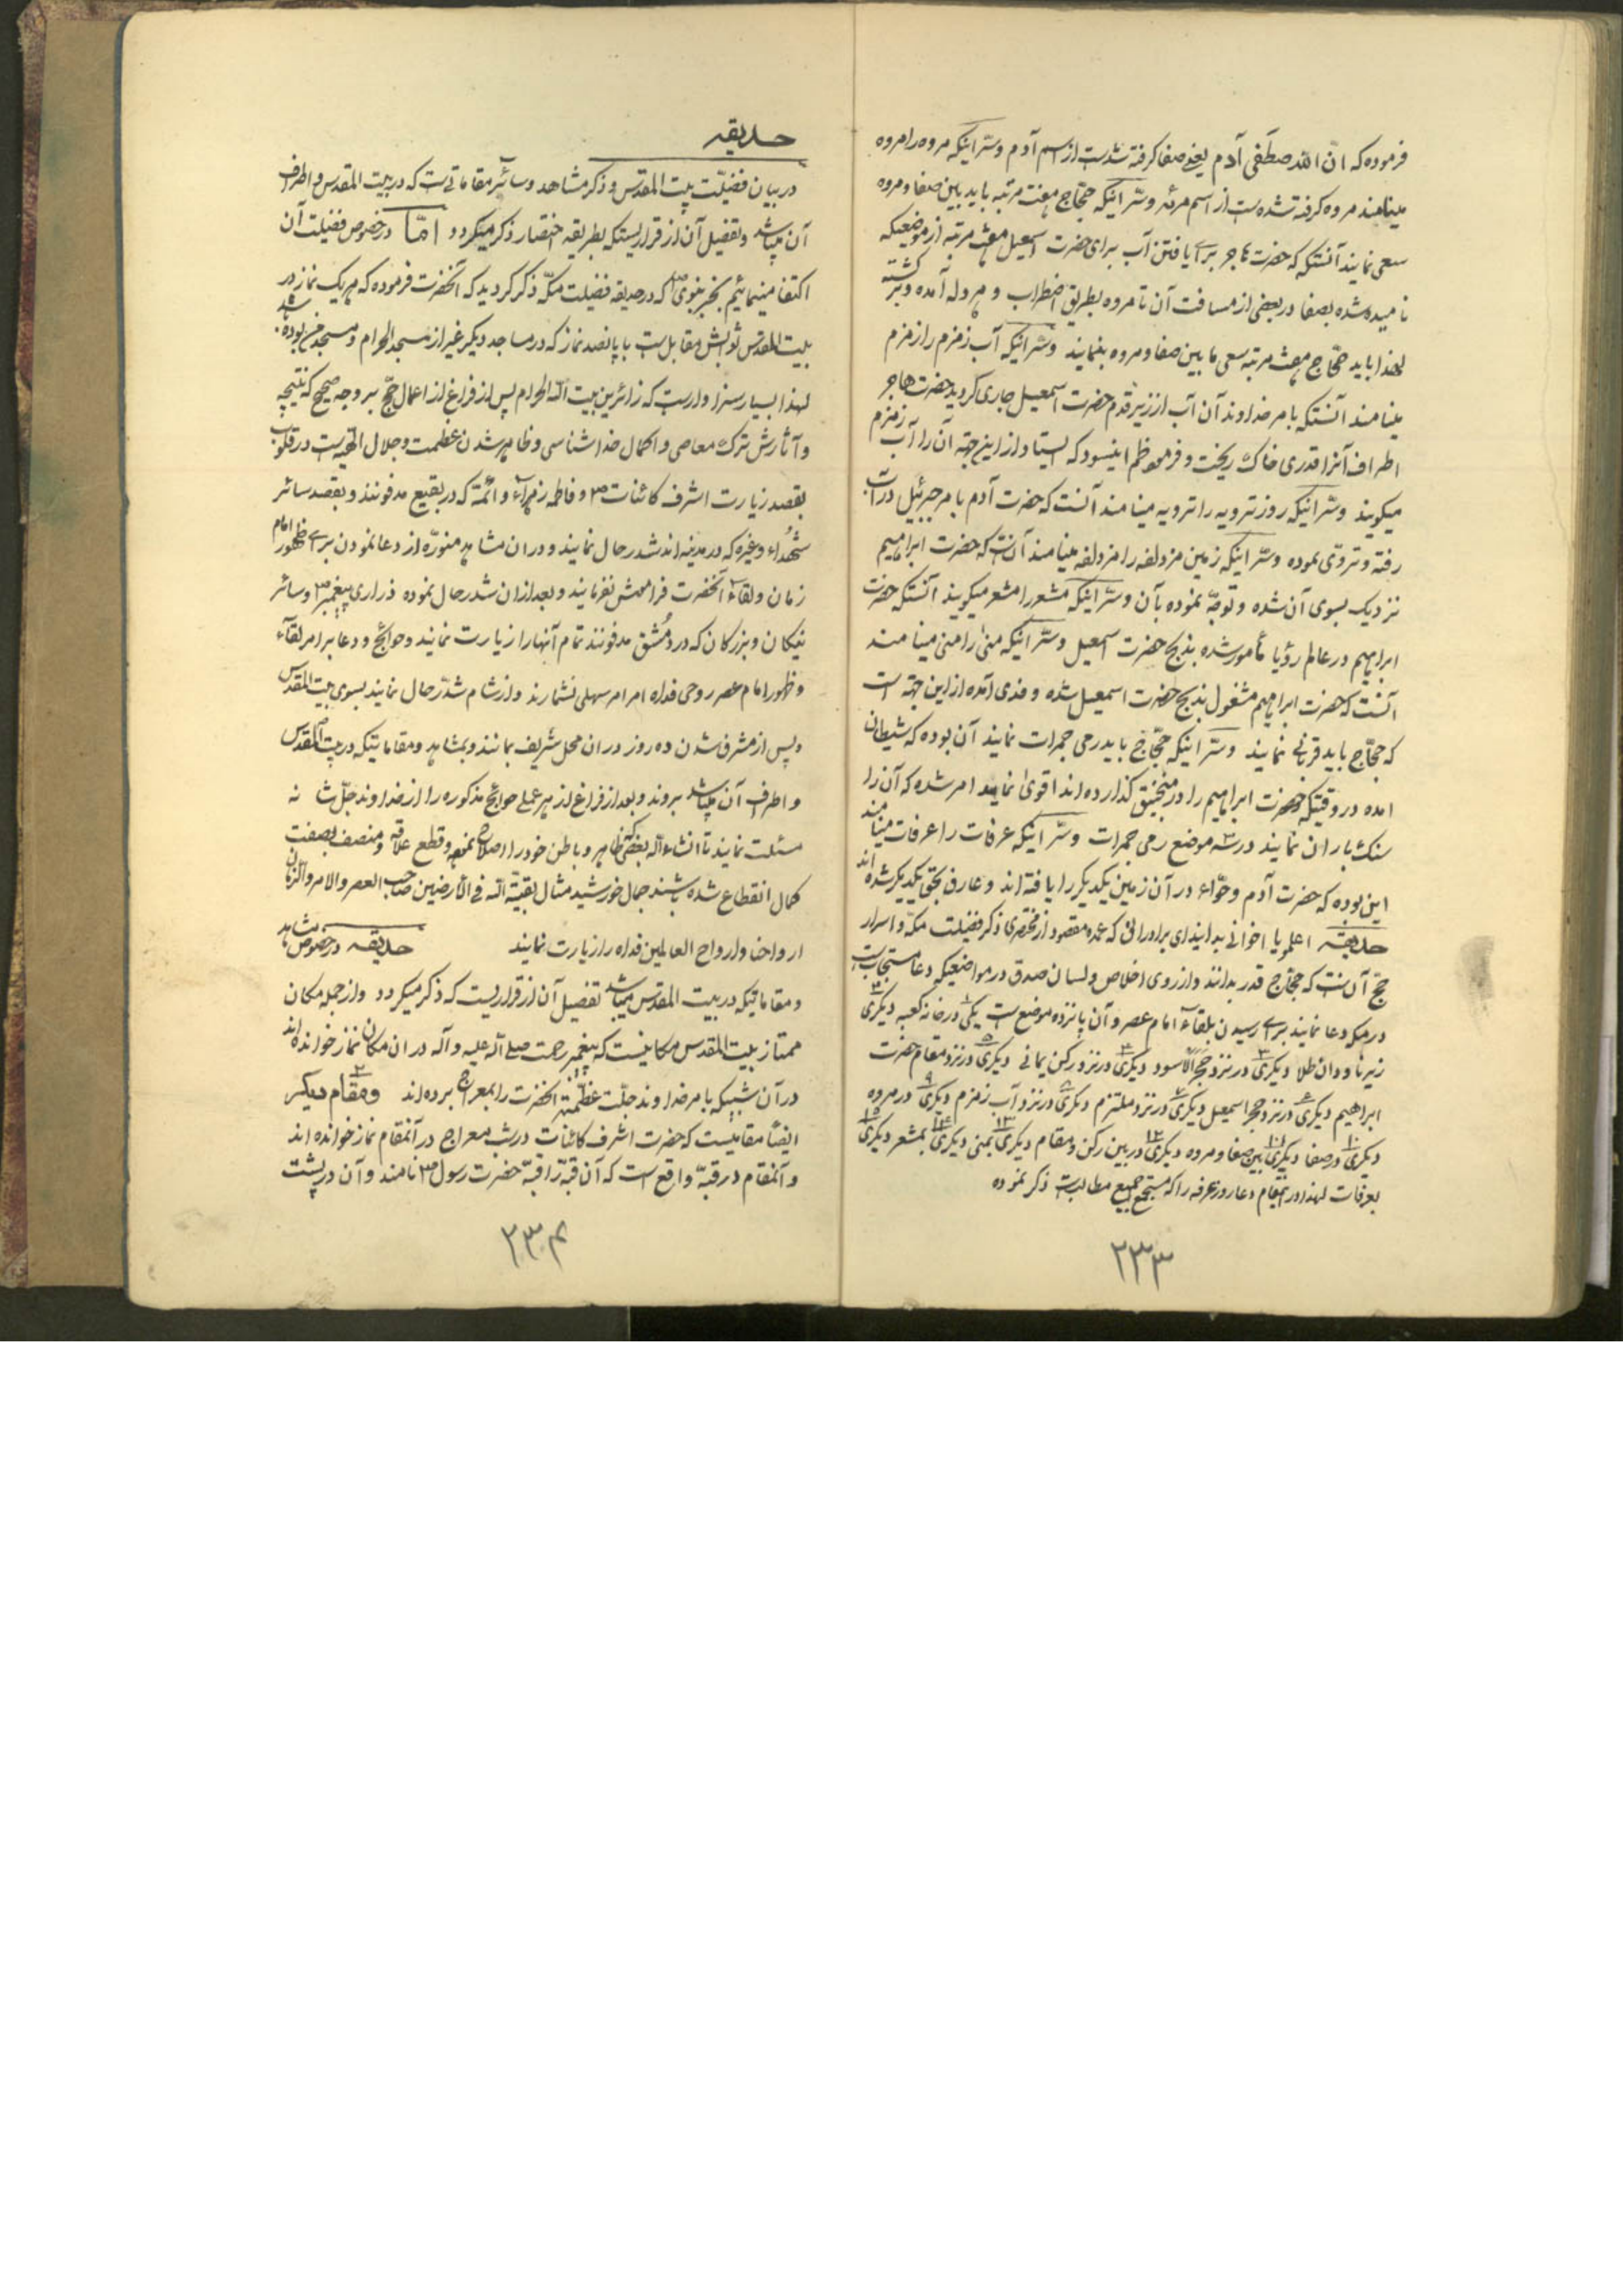 فرموده که انّ الله صطفی آدم یعنی صفا گرفته شدست از اسم آدم و سرّ اینکه مروه را مروه
مینامند مروه گرفته شده ست از اسم مرئه و سرّ اینکه حجّاج هفت مرتبه باید بین صفا و مروه
سعی نمایند آنستکه که حضرت هاجر برای یافتن آب برای حضرت اسمعیل هفت مرتبه از موضعیکه
نامیده شده بصفا در بعضی از مسافت آن تا مروه بطریق اضطراب و هروله آمده و برگشته
لهذا باید حجّاج هفت مرتبه سعی ما بین صفا و مروه بنمایند و سرّ اینکه آب زمزم را زمزم
مینامند آنستکه بامر خداوند آن آب از زیر قدم حضرت اسمعیل جاری گردید حضرت هاجر
اطراف آنرا قدری خاک ریخت و فرمود زم ایستاد از این جهة آن را آب زمزم
میگویند و سرّ اینکه روز ترویه را ترویه مینامند آنست که حضرت آدم بامر جبرئیل در آب
رفته و تروّی نموده و سرّ اینکه زمین مزدلفه را مزدلفه مینامند آن ست که حضرت ابراهیم
نزدیک بسوی آن شده و توجّه نموده بآن و سرّ اینکه مشعر را مشعر میگویند آنستکه حضرت
ابراهیم در عالم رؤیا مأمور شده بذبح حضرت اسمعیل و سرّ اینکه منی را منی مینامند
آنست که حضرت ابراهیم مشغول بذبح حضرت اسمعیل شده و فدی آمده از این جهة است
که حجّاج باید قربانی نمایند و سرّ اینکه حجّاج باید رمی جمرات نمایند آن بوده که شیطان
امده در وقتیکه حضرت ابراهیم را در منجنیق گذارده اند اقوی نماید امر شده که آن را
سنگ باران نمایند در سه موضع رمی جمرات و سرّ اینکه عرفات را عرفات مینامند
این بوده که حضرت آدم و حوّاء در آن زمین یکدیگر را یافته اند و عارف بحق یکدیگر شده اند
حدیقه اعلموا یا اخوانی بدانید ای برادرانی که عمده مقصود از مختصری ذکر فضیلت مکّه و اسرار
حجّ آن ست که حجّاج قدر بدانند و از روی اخلاص و لسان صدق در مواضعیکه دعا مستجاب ست
درمکه دعا نمایند برای رسیدن بلقاء امام عصر و آن پانزده موضع ست یکی ۱ در خانه کعبه دیگری ۲
زیر ناودان طلا دیگری ۳ در نزد حجر الاسود دیگری ۴ در نزد رکن یمانی دیگری ۵ در نزد مقام حضرت
ابراهیم دیگری ۶ در نزد حجر اسمعیل دیگری ۷ در نزد ملتزم دیگری ۸ در نزد آب زمزم دیگری ۹ در مروه
دیگری ۱۰ در صفا دیگری ۱۱ بین صفا و مروه دیگری ۱۲ در بین رکن و مقام دیگری ۱۳ بمنی دیگری ۱۴ بمشعر دیگری ۱۵
بعرفات لهذا در آنمقام دعا روز عرفه را که مستجمع جمیع مطالب ست ذکر نموده
۲۳۳
حدیقه
در بیان فضیلت بیت المقدس و ذکر مشاهد و سائر مقاماتی ست که در بیت المقدس و اطراف
آن میباشد و تفصیل آن از قراریستکه بطریقه اختصار ذکر میگردد امّا در خصوص فضیلت آن
اکتفا مینمائیم بخبر نبوی ص که در حدیقه فضیلت مکّه ذکر گردید که آنحضرت فرموده که هر یک نماز در
بیت المقدس ثوابش مقابل ست با پانصد نماز که در مساجد دیگر غیر از مسجد الحرام و مسجد من بوده باشد
لهذا بسیار سزاوار ست که زائرین بیت الله الحرام پس از فراغ از اعمال حجّ بر وجه صحیح که نتیجه
و آثارش ترک معاصی و اکمال خداشناسی و ظاهر شدن عظمت و جلال الهی ست در قلوب
بقصد زیارت اشرف کائنات ص و فاطمه زهراء و ائمّة که در بقیع مدفونند و بقصد سائر
شهداء و غیره که در مدینه اند شدّ رحال نمایند و در ان مشاهد منوّره از دعا نمودن برای ظهور امام
زمان و لقاء آنحضرت فراموش نفرمایند و بعد از ان شدّ رحال نموده ذراری پیغمبر ص و سائر
نیکان و بزرگان که در دمشق مدفونند تمام آنها را زیارت نمایند و حوائج و دعا برامر لقاء
و ظهور امام عصر روحی فداه امر امر سهلی نشمارند و از شام شدّ رحال نمایند بسوی بیت المقدس
و پس از مشرف شدن ده روز در ان محل شریف بمانند و بمشاهد و مقاماتیکه در بیت المقدس
و اطراف آن میباشد بروند و بعد از فراغ از هر عملی حوائج مذکوره را از خداوند جلّ شانه
مسئلت نمایند تا انشاءالله بعضی ظاهر و باطن خود را اصلاح نموده و قطع علاقه و متصف بصفت
کمال انقطاع شده باشند جمال خورشید مثال بقیّة الله فی الارضین صاحب العصر والامر والزمان
ارواحنا و ارواح العالمین فداه را زیارت نمایند حدیقه در خصوص مشاهد
و مقاماتیکه در بیت المقدس میباشد تفصیل آن از قراریست که ذکر میگردد و از جمله مکان
ممتاز بیت المقدس مکانیست که پیغمبر رحمت صلی الله علیه و آله در ان مکان نماز خوانده اند
در آن شبیکه بامر خداوند جلّت عظمته آنحضرت را بمعراج برده اند و مقام ۲ دیگر
ایضاً مقامیست که حضرت اشرف کائنات در شب معراج در آنمقام نماز خوانده اند
و آنمقام در قبّه واقع است که آن قبّه را قبّه حضرت رسول ص نامند و آن در پشت
۲۳۴